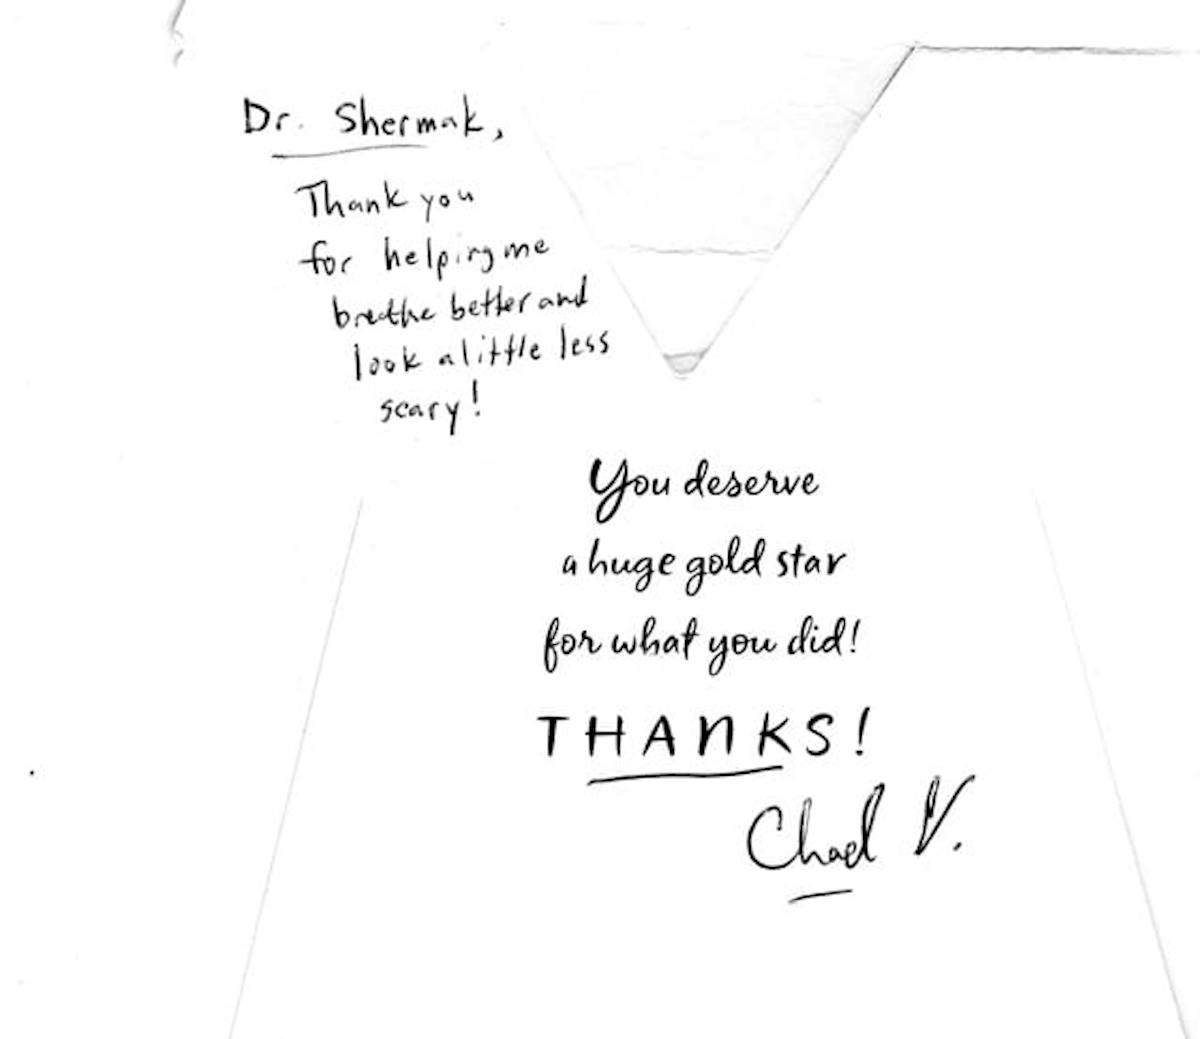 Dr. Shermak,
Thank you
for helping me
breathe better and
look a little less
scary!
You deserve
a huge gold star
for what you did!
THANKS!
Chad V.